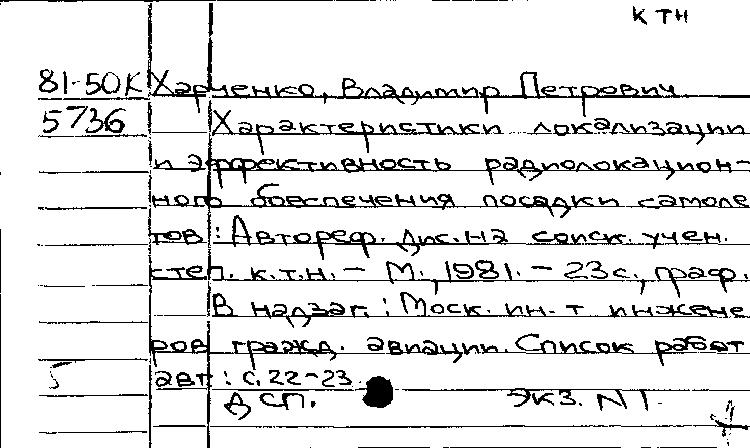 КТН
81-50К Харченко, Владимир Петрович
5736 Характеристики локализации
и эффективность радиолокацион-
ного обеспечения посадки самоле
тов : Автореф. дис. на соиск. учен.
степ. к.т.н. – М., 1981. – 23 с., граф.
В надзаг. : Моск. ин-т инжене
ров гражд. авиации. Список работ
5 авт : с. 22-23
ДСП. ЭКЗ. N 1.